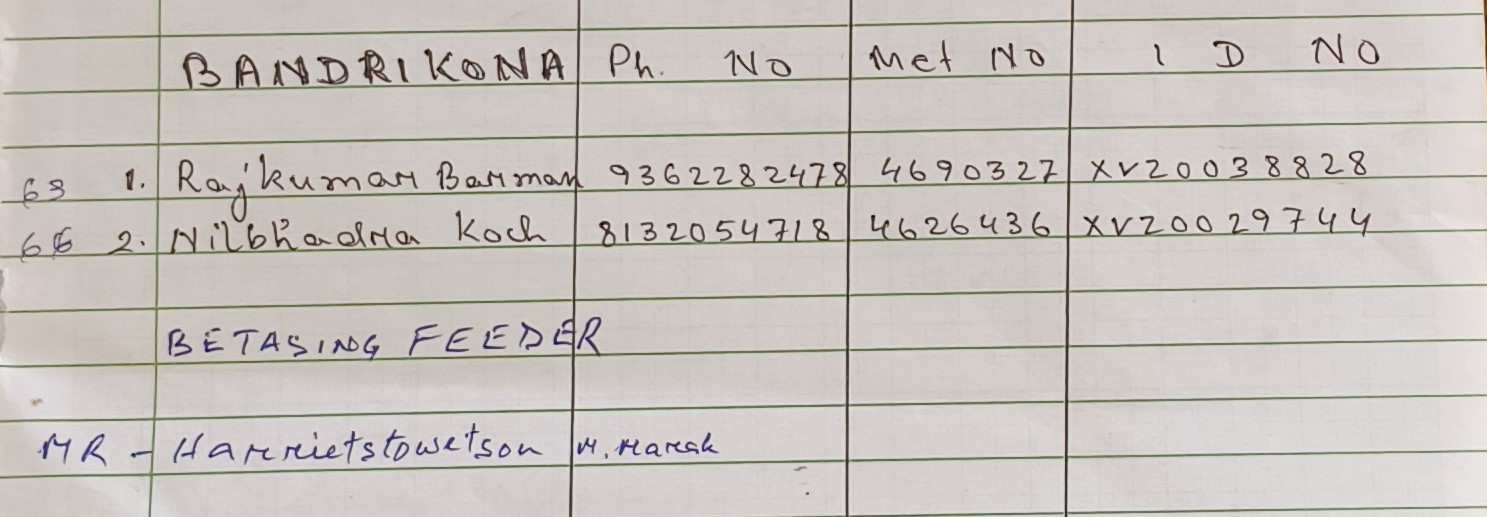 BANDRIKONA Ph. NO Met NO I D NO
63 1. Rajkumar Barman 9362282478 4690327 XVZ0038828
66 2. Nilbhadra Koch 8132054718 4626436 XVZ0029744
BETASING FEEDER
MR - Harrietstowetson M. Marak